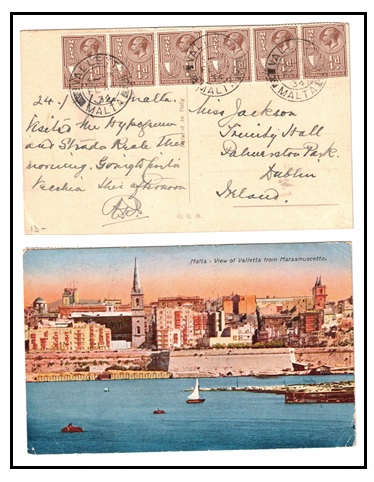 VALLETTA
MALTA
VALLETTA
MALTA
VALLETTA
MALTA
24. Malta.
Visited the Hypogeum
and Strada Reale this
morning. Going to Citta
Vecchia this afternoon
Miss Jackson
Trinity Hall
Palmerston Park.
Dublin
Ireland.
G. G. M.
Malta - View of Valletta from Marsamuscetto.